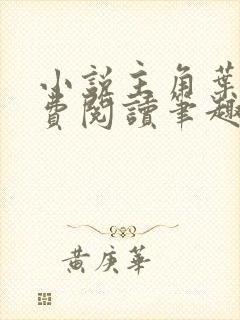 小說主角葉
費閱讀筆趣
黃庚華